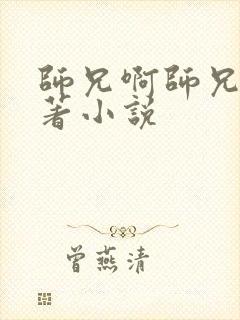 師兄啊師兄
著小説
曾燕清